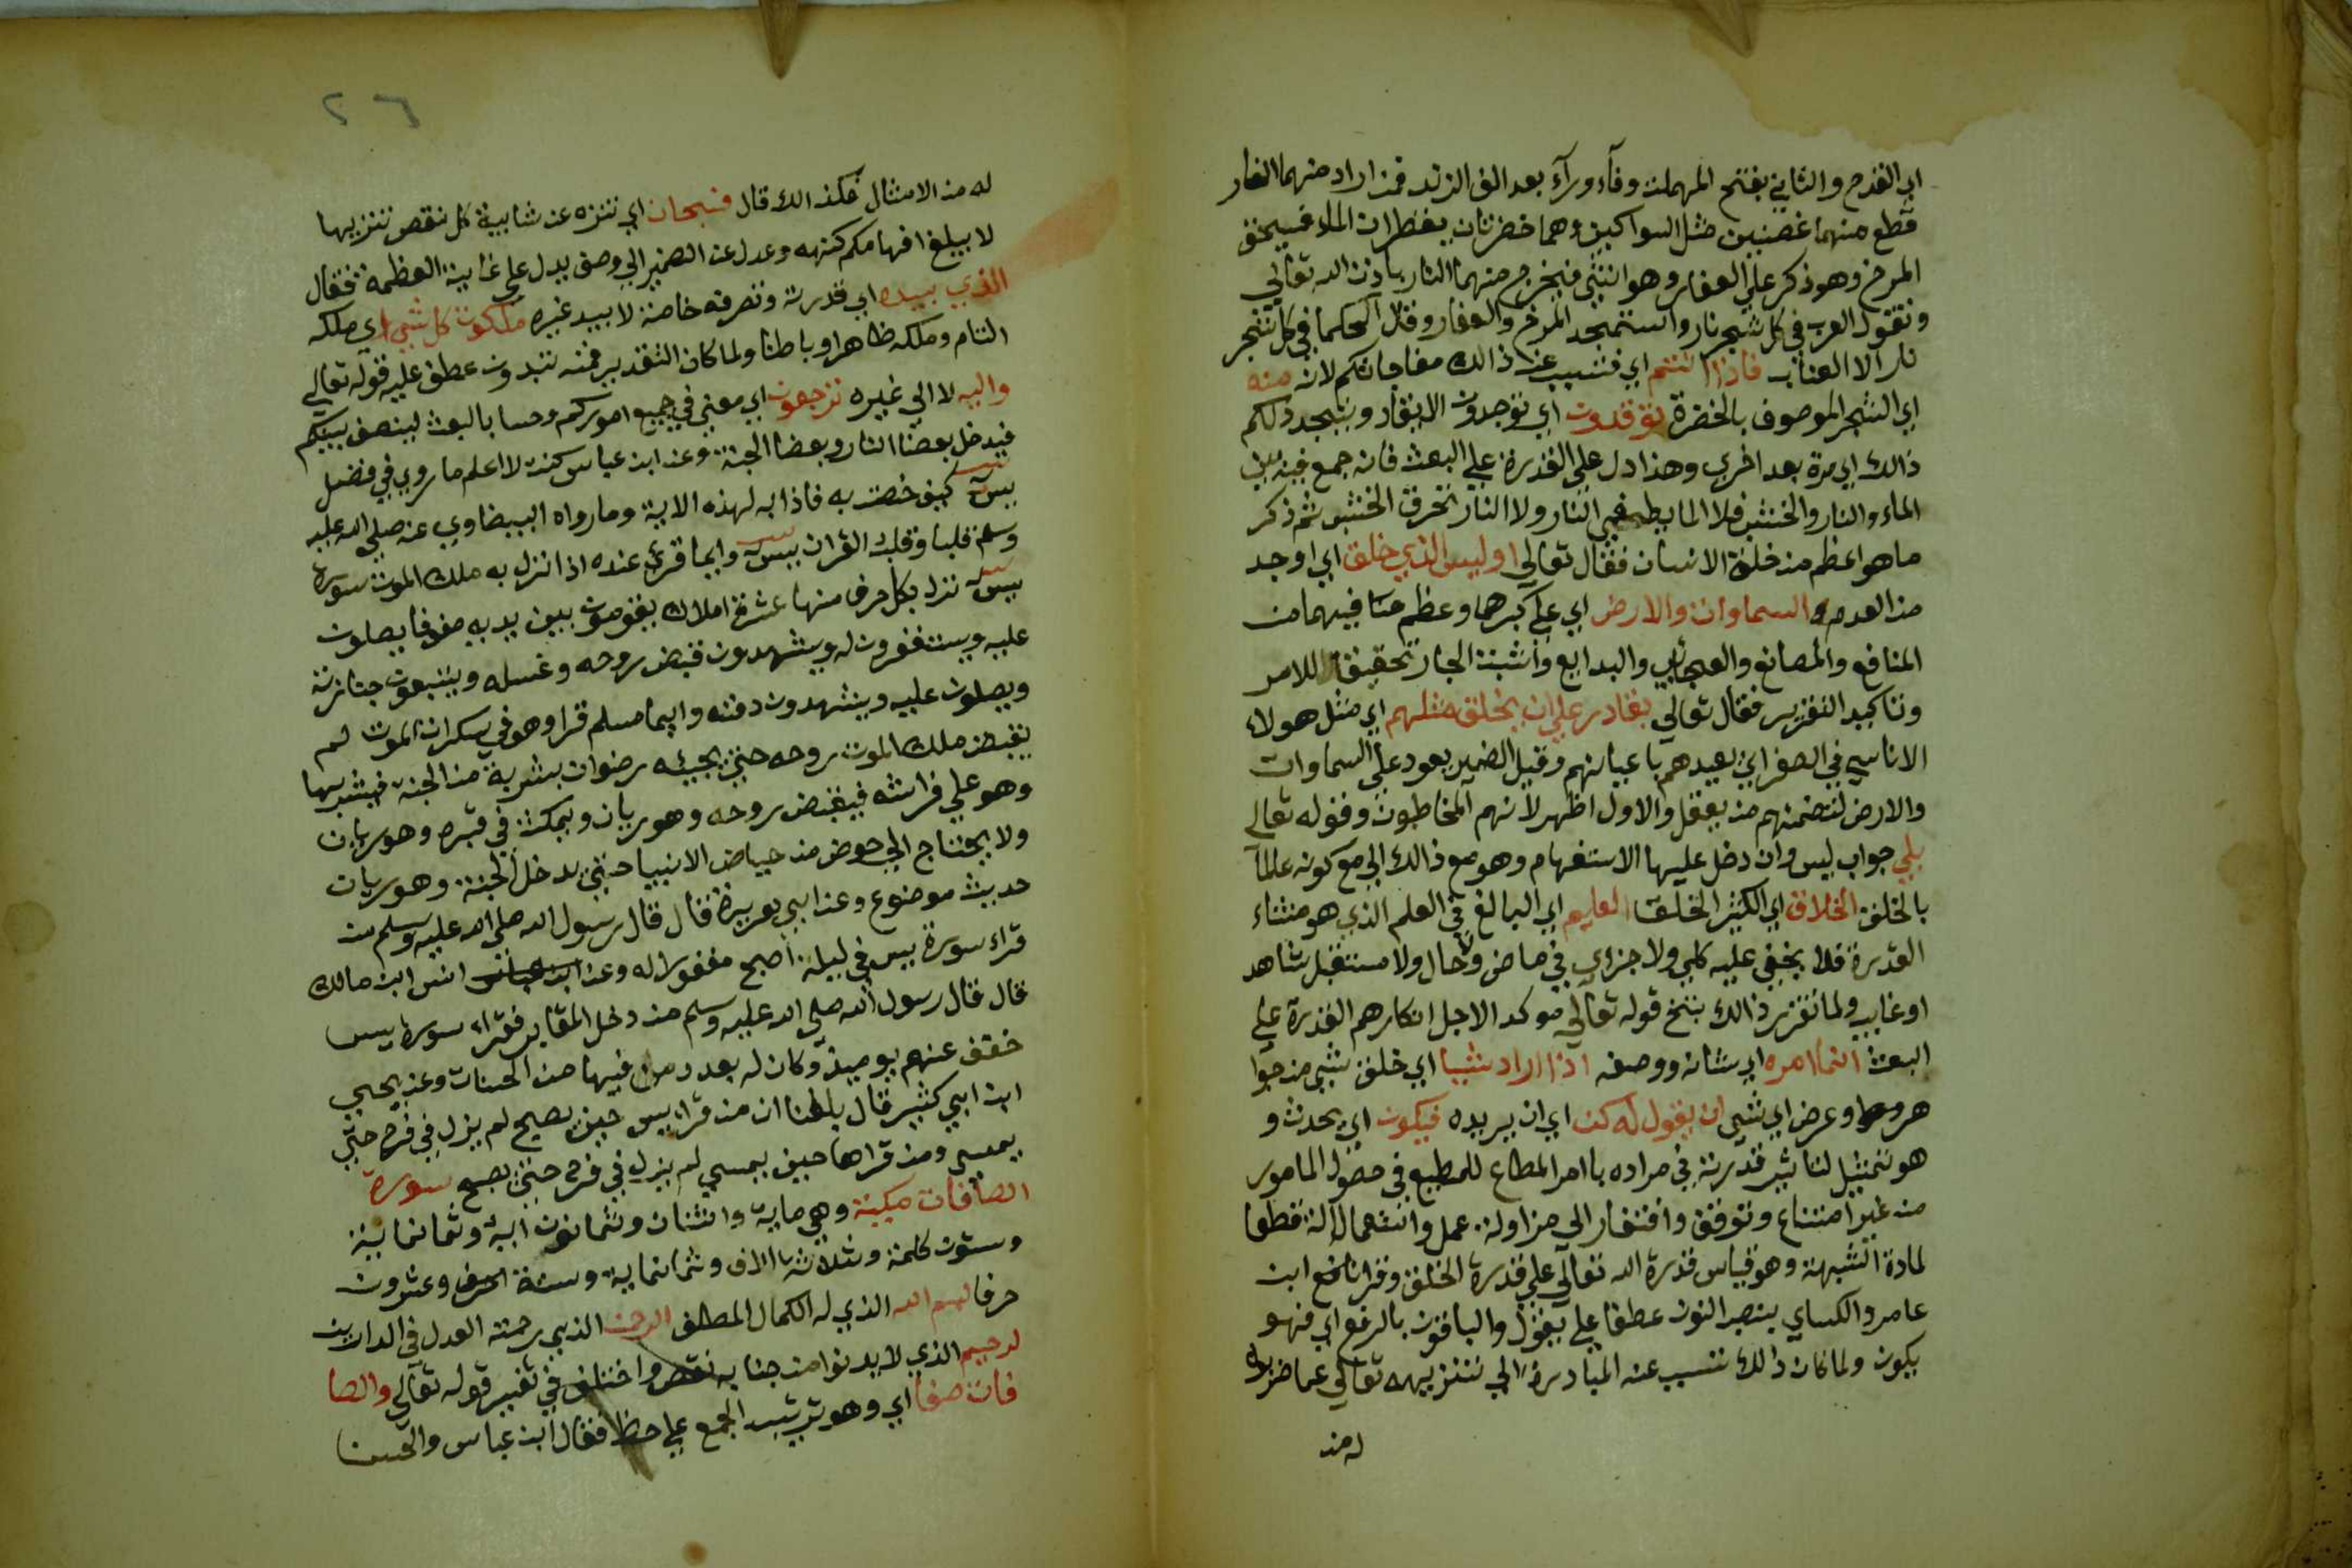 اي القدح والثاني بفتح المهملت وفآء ورآء بعد الف الزند فمن اراد منهما النار
قطع منهما غصنين مثل السواكين وهما خضرتان يقطران الماء فيسحق
المرخ وهو ذكر علي العفار وهو انثي فيخرج منهما النار باذن الله تعالي
وتقول العرب في كل شجر نار واستمجد المرخ والعفار وقال الحكما في كل شجر
نار الا العناب فاذا انتم اي فتسبب عن ذالك مفاجاتكم لانه منه
اي الشجر الموصوف بالخضرة توقدون اي توجدون الايقاد ويتجدد لكم
ذالك اي مرة بعد اخري وهذا دل علي القدرة علي البعث فانه جمع فيه بين
الماء والنار والخشب فلا الما يطفي النار ولا النار تحرق الخشب ثم ذكر
ما هو اعظم من خلق الانسان فقال تعالي اوليس الذي خلق اي اوجد
من العدم السماوات والارض اي علي كبرهما وعظم ما فيهما من
المنافع والمصانع والعجائب والبدايع واثبت الجار تحقيقا للامر
وتاكيد التقرير فقال تعالي بقادر علي ان يخلق مثلهم اي مثل هولاء
الاناسي في الصغر اي يعيدهم باعيانهم وقيل الضمير يعود علي السماوات
والارض لتضمنهم من يعقل والاول اظهر لانهم المخاطبون وقوله تعالي
بلي جواب ليس وان دخل عليها الاستفهام وهو مع ذالك اي مع كونه عالما
بالخلق الخلاق اي الكثير الخلق العليم اي البالغ في العلم الذي هو منشاء
القدرة فلا يخفي عليه كلي ولا جزاي في ماض ولا حال ولا مستقبل شاهد
او غايب ولما تقرر ذالك نتج قوله تعالي موكد الاجل انكارهم القدرة علي
البعث انما امره اي شانه ووصفه اذا اراد شيا اي خلق شي من جوا
هر وعرض اي شي ان يقول له كن اي ان يريده فيكون اي يحدث و
هو تمثيل لتاثير قدرته في مراده باامر المطاع للمطيع في حصول المامور
من غير امتناع وتوقف وافتقار الي مزاولة عمل واستعمال الة قطعا
لمادة الشبهة وهو قياس قدرة الله تعالي علي قدرة الخلق وقرا نافع ابن
عامر والكساي بنصب النون عطفا علي يقول والباقون بالرفع اي فهو
يكون ولما كان ذالك تسبب عنه المبادرة الي تنزيهه تعالي عما ضربوا
له من
٢٦
له من الامثال فلذالك قال فسبحان اي تنزه عن شايبة كل نقص تنزيها
لا يبلغ افهامكم كنهه وعدل عن الضمير الي وصف يدل علي غاية العظمة فقال
الذي بيده اي قدرته وتصرفه خاصة لا بيد غيره ملكوت كل شي اي ملكه
التام وملكه ظاهرا وباطنا ولما كان التقدير فمنه تبدون عطف عليه قوله تعالي
واليه لا الي غيره ترجعون اي معني في جميع اموركم وحسا بالبعث لينصف بينكم
فيدخل بعضا النار وبعضا الجنة وعن ابن عباس كنت لا اعلم ما روي في فضل
يس كيف خصت به فاذا به لهذه الاية وما رواه البيضاوي عنه صلي الله عليه
وسلم قلبا وقلب القران يس وايما قرئ عنده اذا نزل به ملك الموت سورة
يس نزل بكل حرف منها عشرة املاك يقومون بين يديه صفوفا يصلون
عليه ويستغفرون له ويشهدون قبض روحه وغسله ويتبعون جنازته
ويصلون عليه ويشهدون دفنه وايما مسلم قرا وهو في سكرات الموت لم
يقبض ملك الموت روحه حتي يجيئه رضوان بشربة من الجنة فيشربها
وهو علي فراشه فيقبض روحه وهو ريان ويمكث في قبره وهو ريان
ولا يحتاج الي حوض من حياض الانبيا حتي يدخل الجنة وهو ريان
حديث موضوع وعن ابي هريرة قال قال رسول الله صلي الله عليه وسلم من
قراء سورة يس في ليلة اصبح مغفورا له وعن ابن عباس انس ابن مالك
قال قال رسول الله صلي الله عليه وسلم من دخل المقابر فقراء سورة يس
خفف عنهم يوميذ وكان له بعدد من فيها من الحسنات وعن يحيي
ابن ابي كثير قال بلغنا ان من قراء يس حين يصبح لم يزل في فرح حتي
يمسي ومن قراها حين يمسي لم يزل في فرح حتي يصبح سورة
الصافات مكية وهي ماية واثنتان وثمانون اية وثمانماية
وستون كلمة وثلاثة الاف وثمانماية وستة وعشرون
حرفا بسم الله الذي له الكمال المطلق الرحمن الذي رحمته العدل في الدارين
الرحيم الذي لا يدنوا من جنابه نقص واختلف في تفسير قوله تعالي والصا
فات صفا اي وهو ترتيب الجمع علي خط فقال ابن عباس والحسن